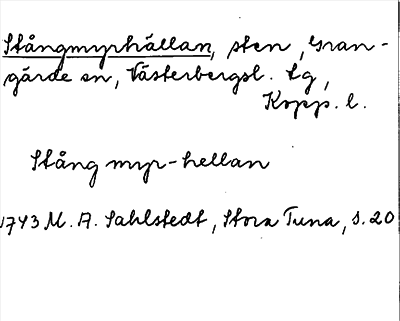 Stångmyrhällan, sten, Gran-
gärde sn, Västerbergsl. tg,
Kopp. l.
Stång myr-hellan
1743 M. A. Sahlstedt, Stora Tuna, s. 20